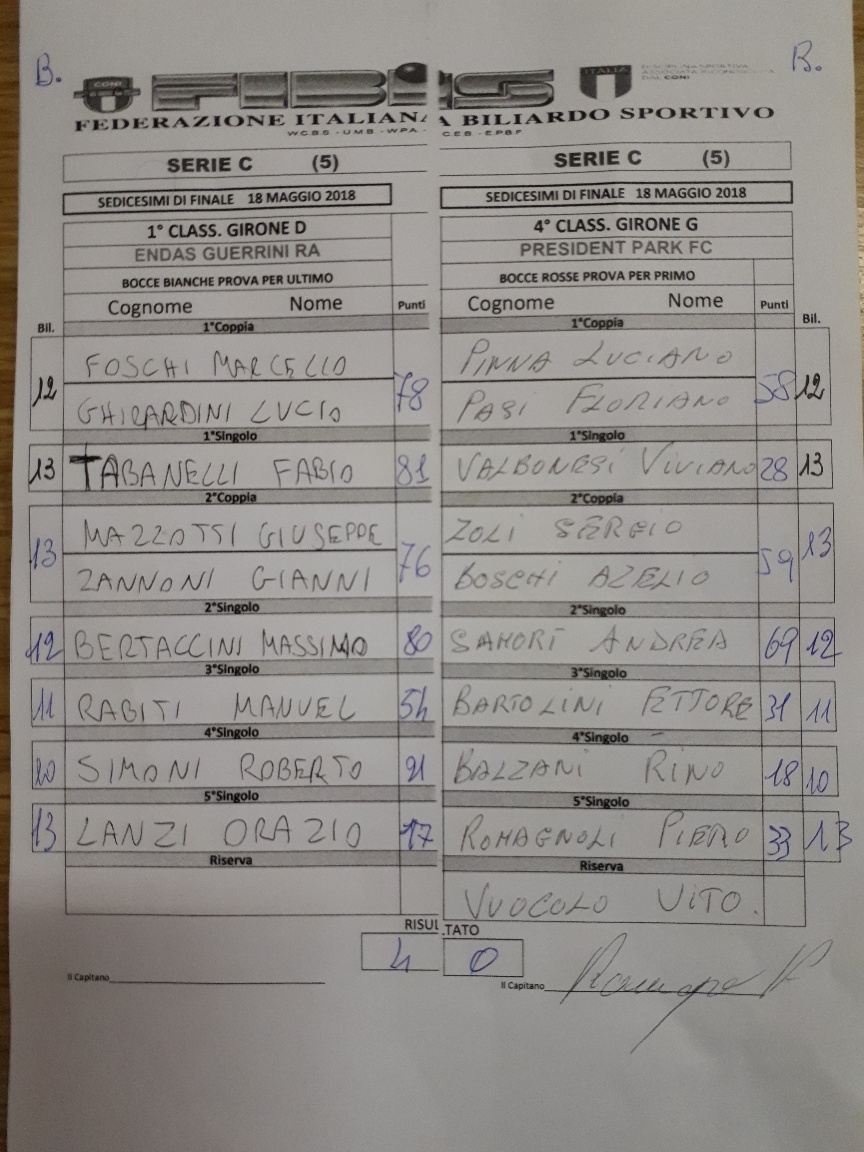 B. B.
CONI FIBIS ITALIA
FEDERAZIONE ITALIANA BILIARDO SPORTIVO
WCBS - UMB - WPA - CEB - EPBF
SERIE C (5) SERIE C (5)
SEDICESIMI DI FINALE 18 MAGGIO 2018 SEDICESIMI DI FINALE 18 MAGGIO 2018
1° CLASS. GIRONE D 4° CLASS. GIRONE G
ENDAS GUERRINI RA PRESIDENT PARK FC
BOCCE BIANCHE PROVA PER ULTIMO BOCCE ROSSE PROVA PER PRIMO
Bil. Cognome Nome Punti Cognome Nome Punti Bil.
1°Coppia 1°Coppia
FOSCHI MARCELLO PINNA LUCIANO
12 78 58 12
GHIRARDINI LUCIO PASI FLORIANO
1°Singolo 1°Singolo
13 TABANELLI FABIO 81 VALBONESI VIVIANO 28 13
2°Coppia 2°Coppia
MAZZOTTI GIUSEPPE ZOLI SERGIO
13 76 59 13
ZANNONI GIANNI BOSCHI AZELIO
2°Singolo 2°Singolo
12 BERTACCINI MASSIMO 80 SAMORI ANDREA 69 12
3°Singolo 3°Singolo
11 RABITI MANUEL 54 BARTOLINI ETTORE 31 11
4°Singolo 4°Singolo
10 SIMONI ROBERTO 91 BALZANI RINO 18 10
5°Singolo 5°Singolo
13 LANZI ORAZIO 17 ROMAGNOLI PIERO 33 13
Riserva Riserva
VUOCOLO VITO.
RISULTATO
4 0
Il Capitano Il Capitano